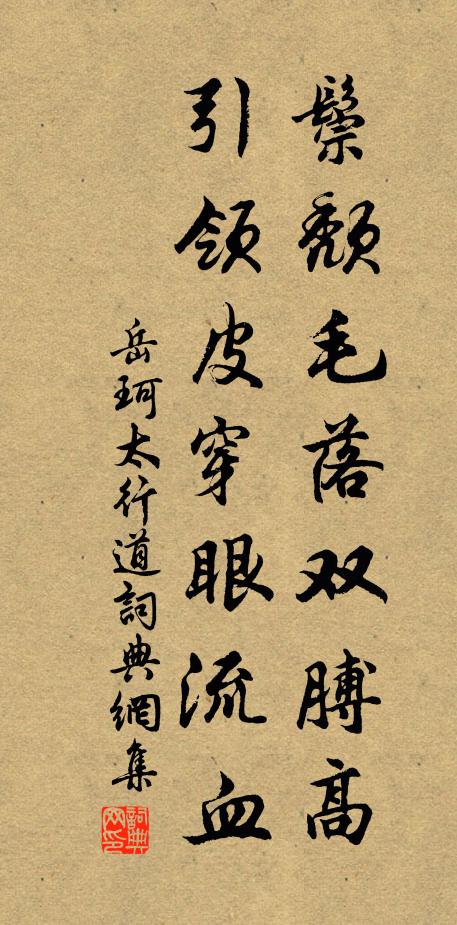 鬃颓毛落双膊高
引领皮穿眼流血
岳珂太行道詞典網集
詞典网印